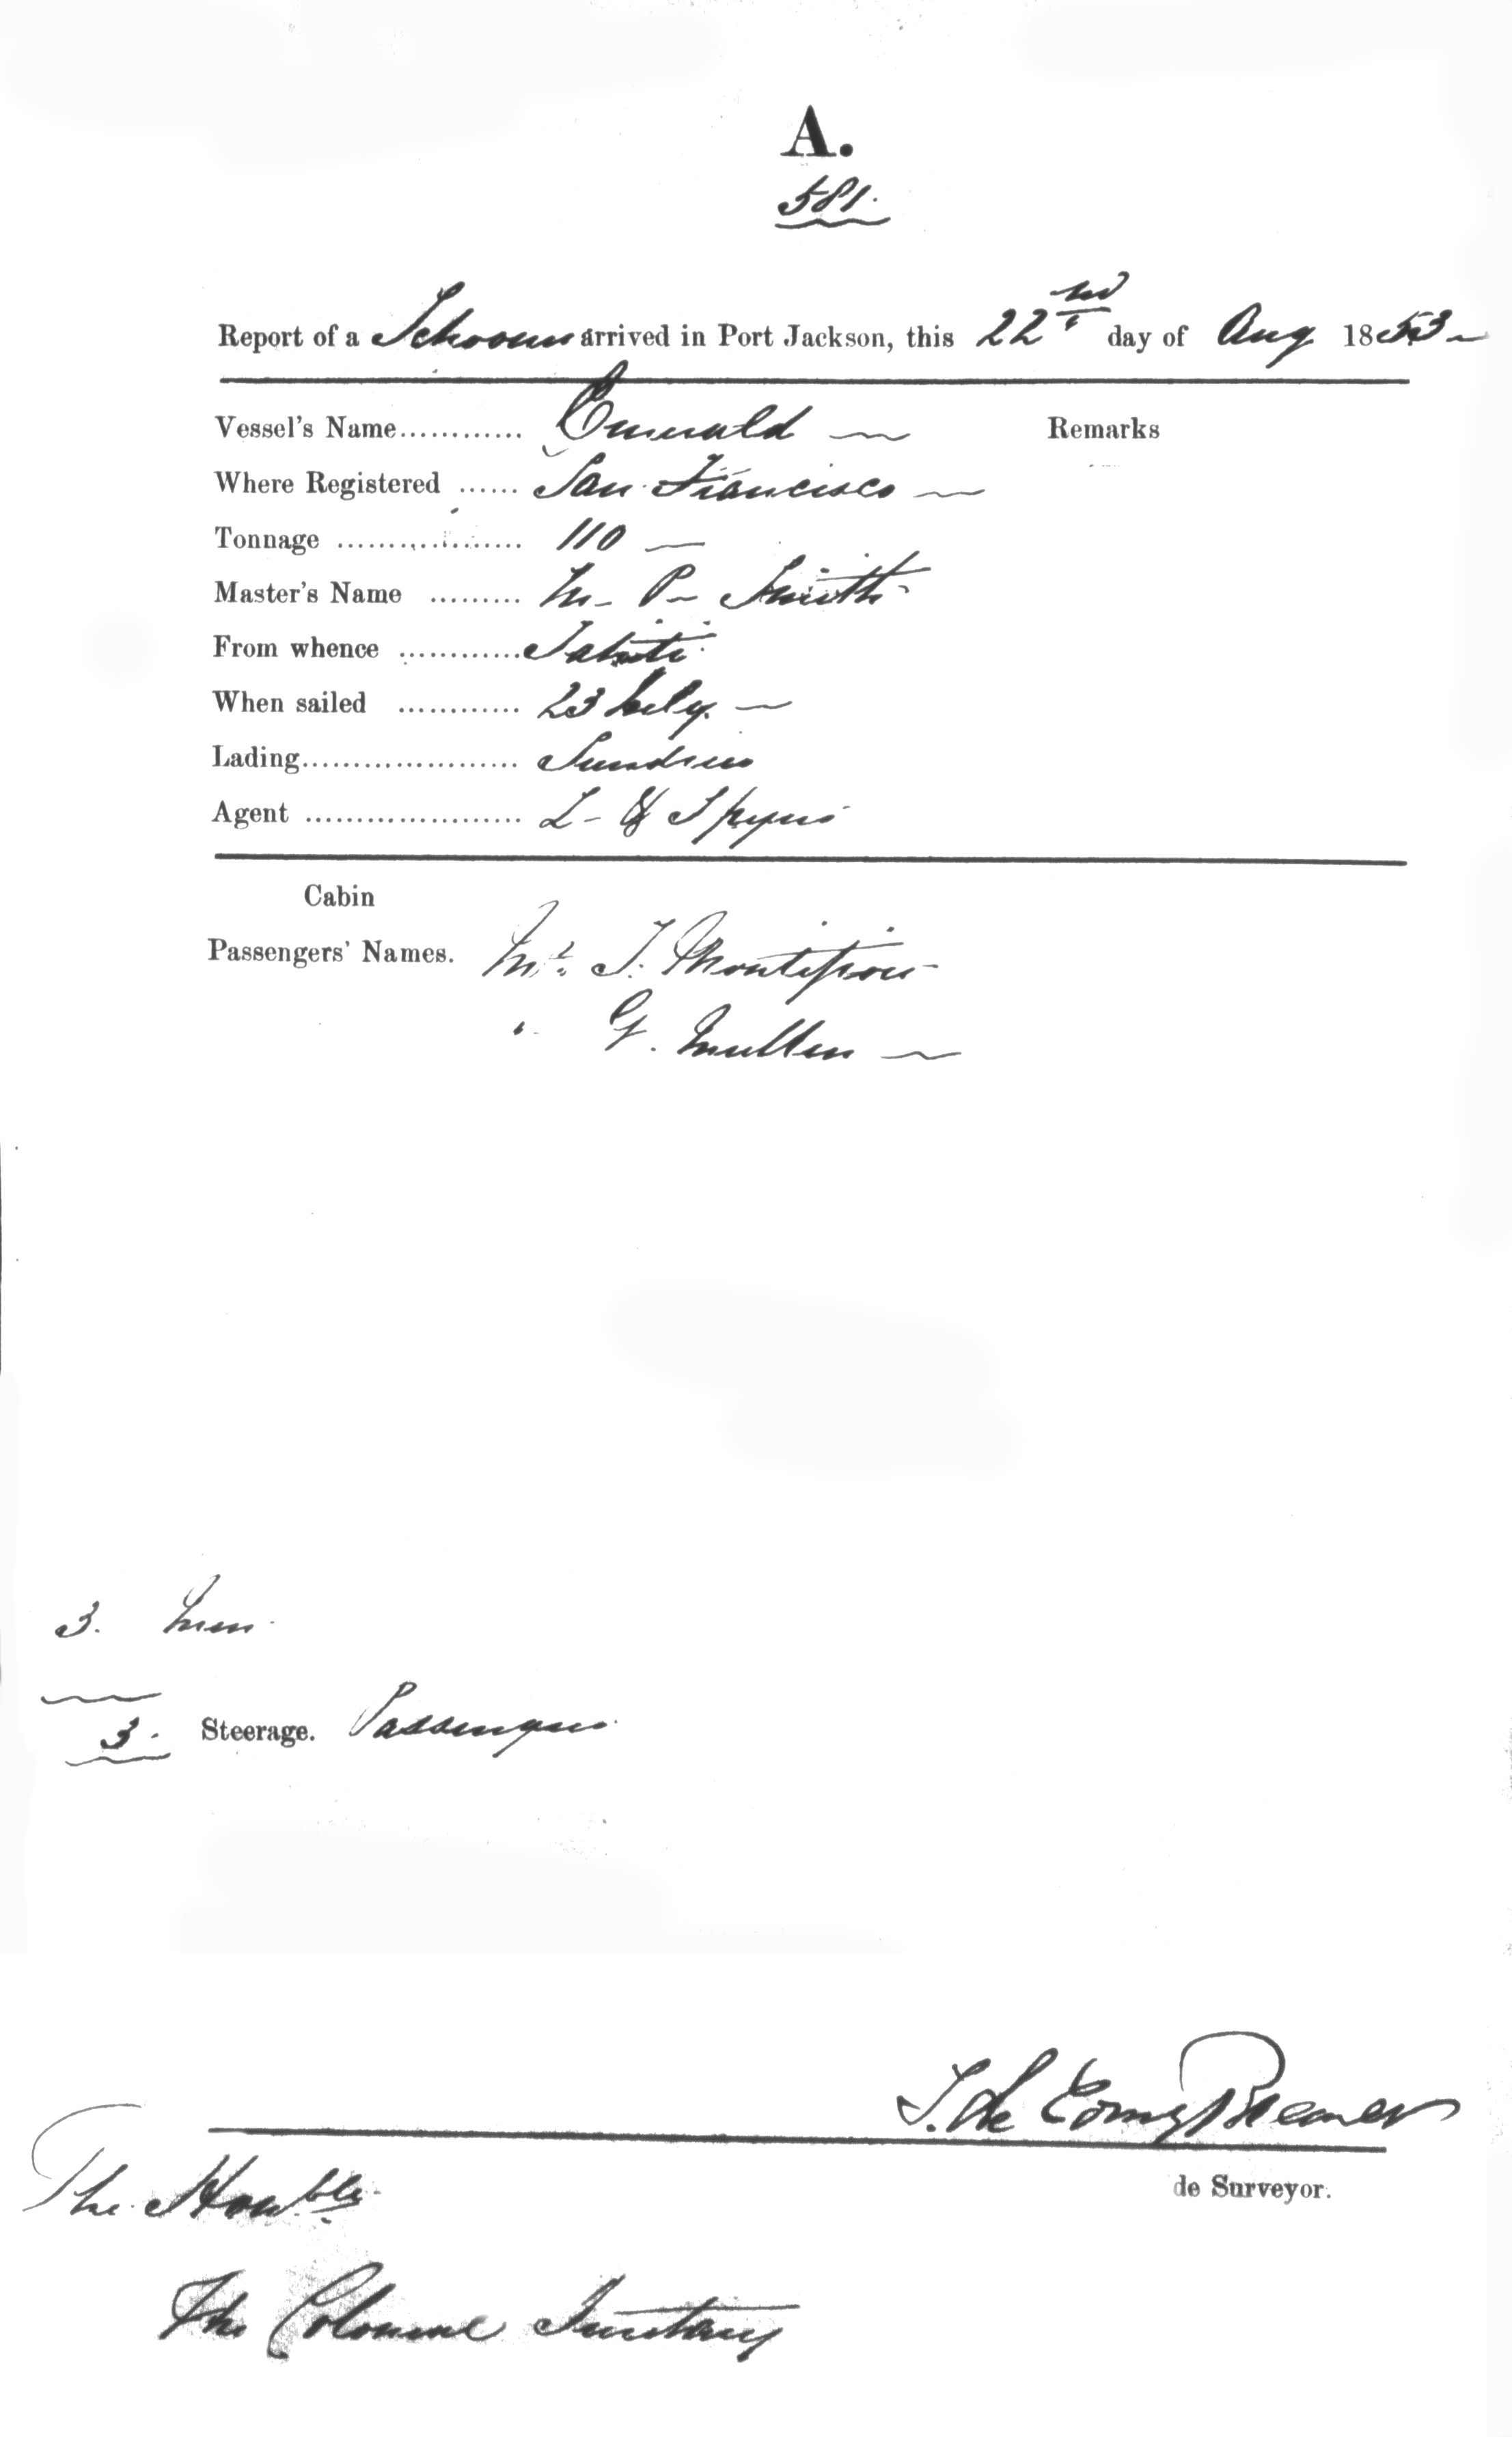 A.
581.
Report of a Schooner arrived in Port Jackson, this 22nd day of Aug 1853
Vessel's Name............ Emerald Remarks
Where Registered ...... San Francisco
Tonnage .................. 110
Master's Name ......... M. P. Smith
From whence ............ Tahiti
When sailed ............ 23 July.
Lading..................... Sundries
Agent ..................... L & S Spyer
Cabin
Passengers' Names. Mr. J. Montifiore
" G. Mullen
3. Men
3. Steerage. Passengers
J. de Courcy Bremer
de Surveyor.
The Honble.
The Colonial Secretary